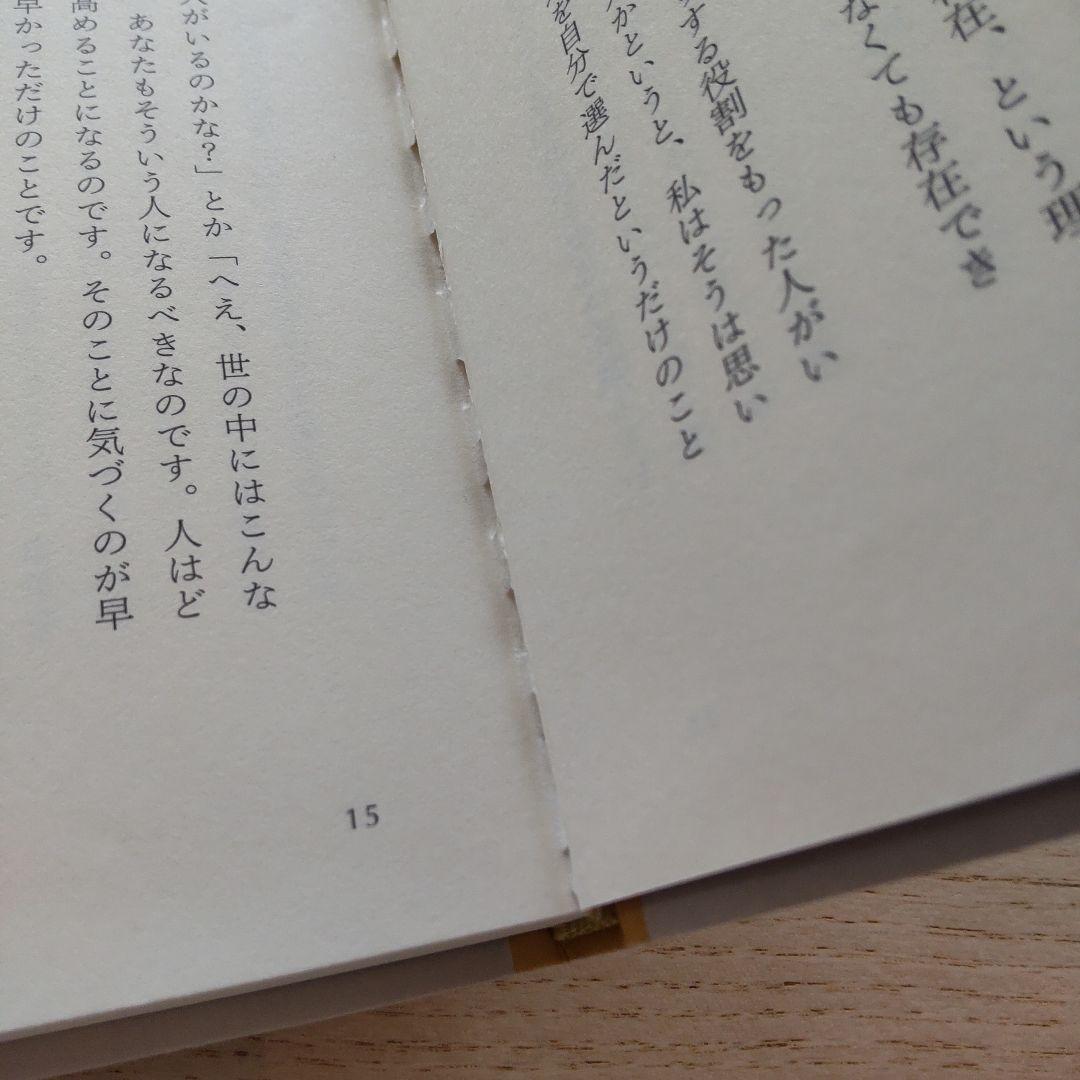 在、という理
なくても存在でき
する役割をもった人がい
かというと、私はそうは思い
を自分で選んだというだけのこと
がいるのかな?」とか「へえ、世の中にはこんな
あなたもそういう人になるべきなのです。人はど
高めることになるのです。そのことに気づくのが早
早かっただけのことです。
15